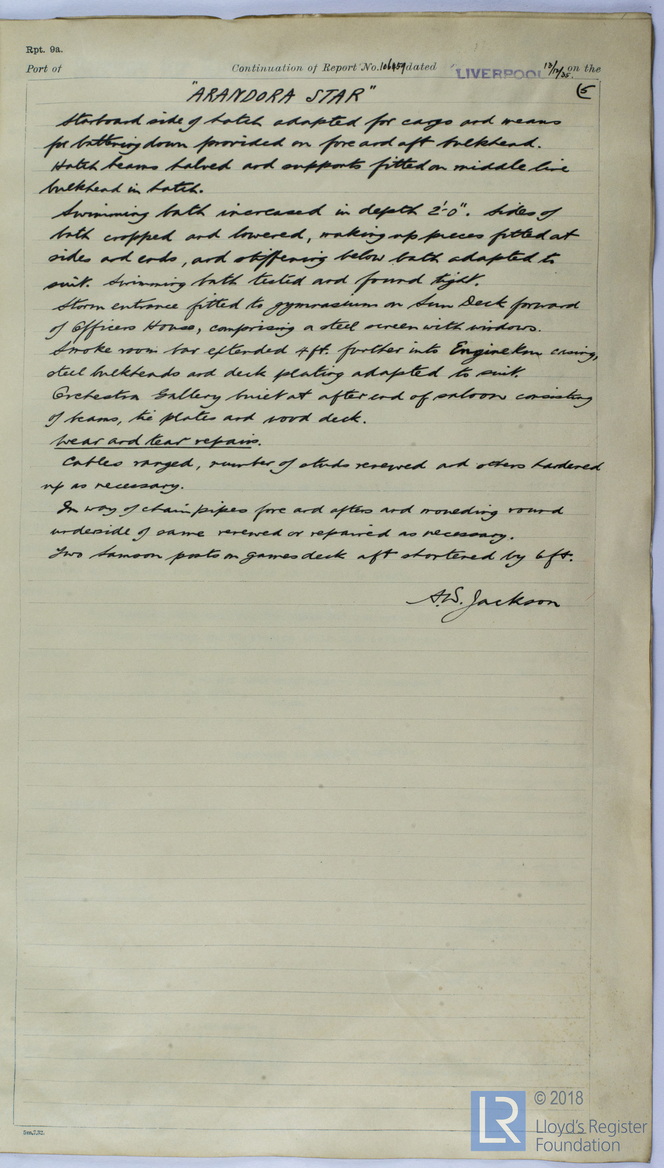 Rpt. 9a.
Port of Continuation of Report No. dated LIVERPOOL 13/12/35 on the
(5
"ARANDORA STAR"
Starboard side of hatch adapted for cargo and means
for battening down provided on fore and aft bulkhead.
Hatch beams halved and supports fitted on middle line
bulkhead in hatch.
Swimming bath increased in depth 2'-0". Sides of
bath cropped and lowered, making up pieces fitted at
sides and ends, and stiffening below bath adapted to
suit. Swimming bath tested and found tight.
Storm entrance fitted to gymnasium on Sun Deck forward
of Officers House, comprising a steel screen with windows.
Smoke room bar extended 4 ft. further into Engine Rm casing,
steel bulkheads and deck plating adapted to suit.
Orchestra Gallery built at after end of saloon consisting
of beams, tie plates and wood deck.
Wear and tear repairs.
Cables ranged, number of studs renewed and others hardened
up as necessary.
In way of chain pipes fore and afters and moulding round
underside of same renewed or repaired as necessary.
Two Samson posts on games deck aft shortened by 6 ft.
A.S. Jackson
© 2018
LR
Lloyd's Register
Foundation